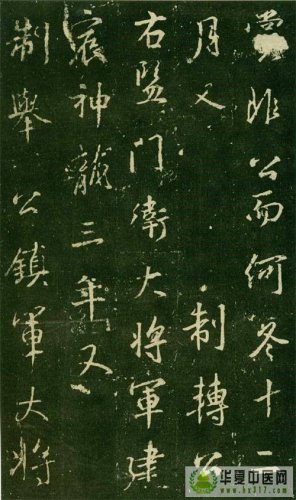 非公而何冬十二
月又 制轉公
右監門衛大將軍建
神龍三年又
制舉公鎮軍大將
华夏中医网
www.hx317.com